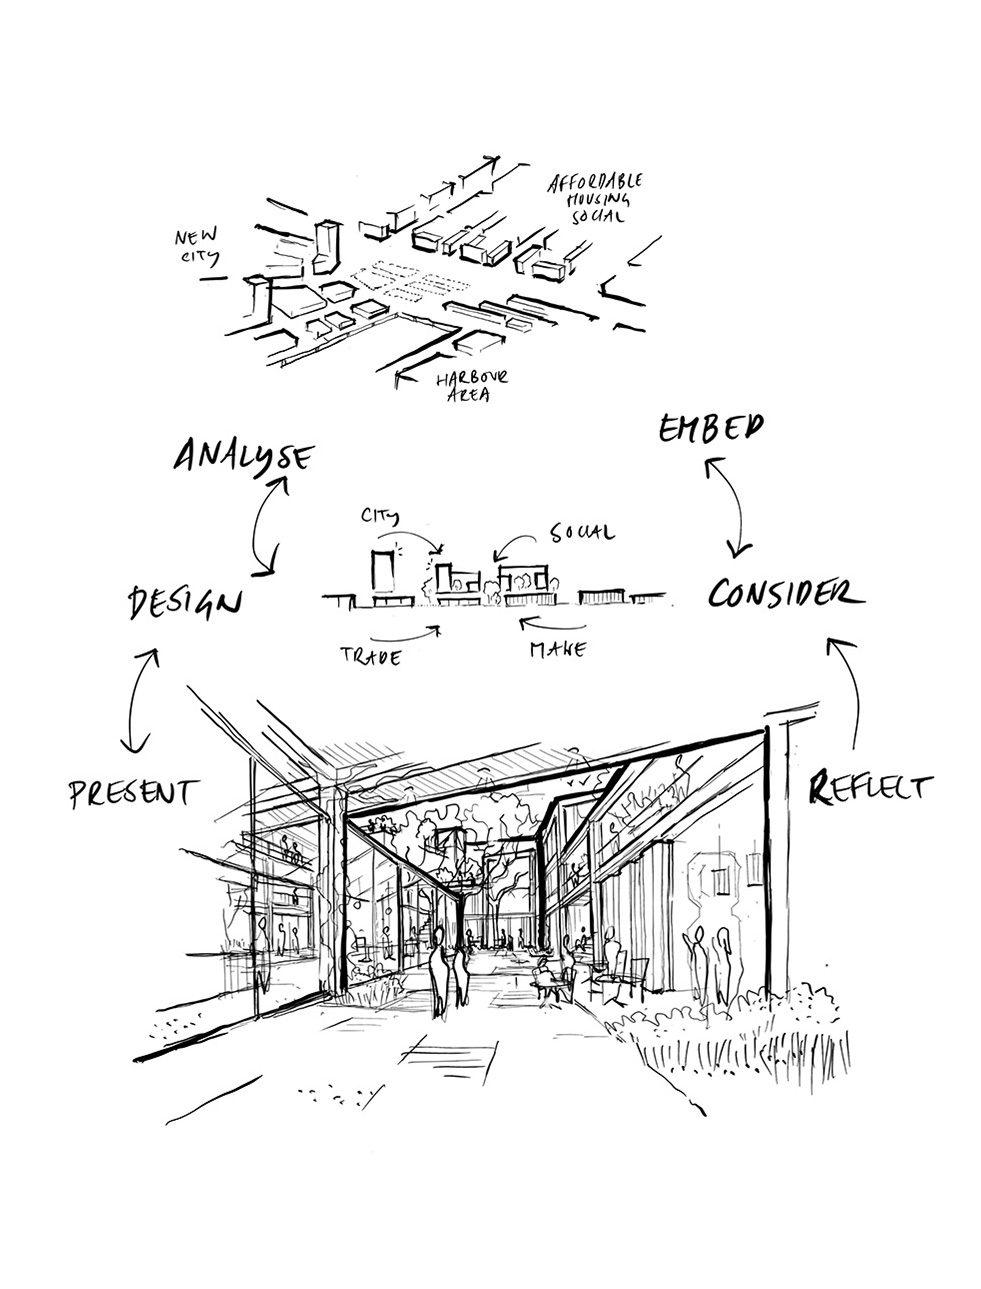 AFFORDABLE
HOUSING
SOCIAL
NEW
CITY
HARBOUR
AREA
ANALYSE
EMBED
CITY
SOCIAL
DESIGN
CONSIDER
TRADE
MAKE
PRESENT
REFLECT